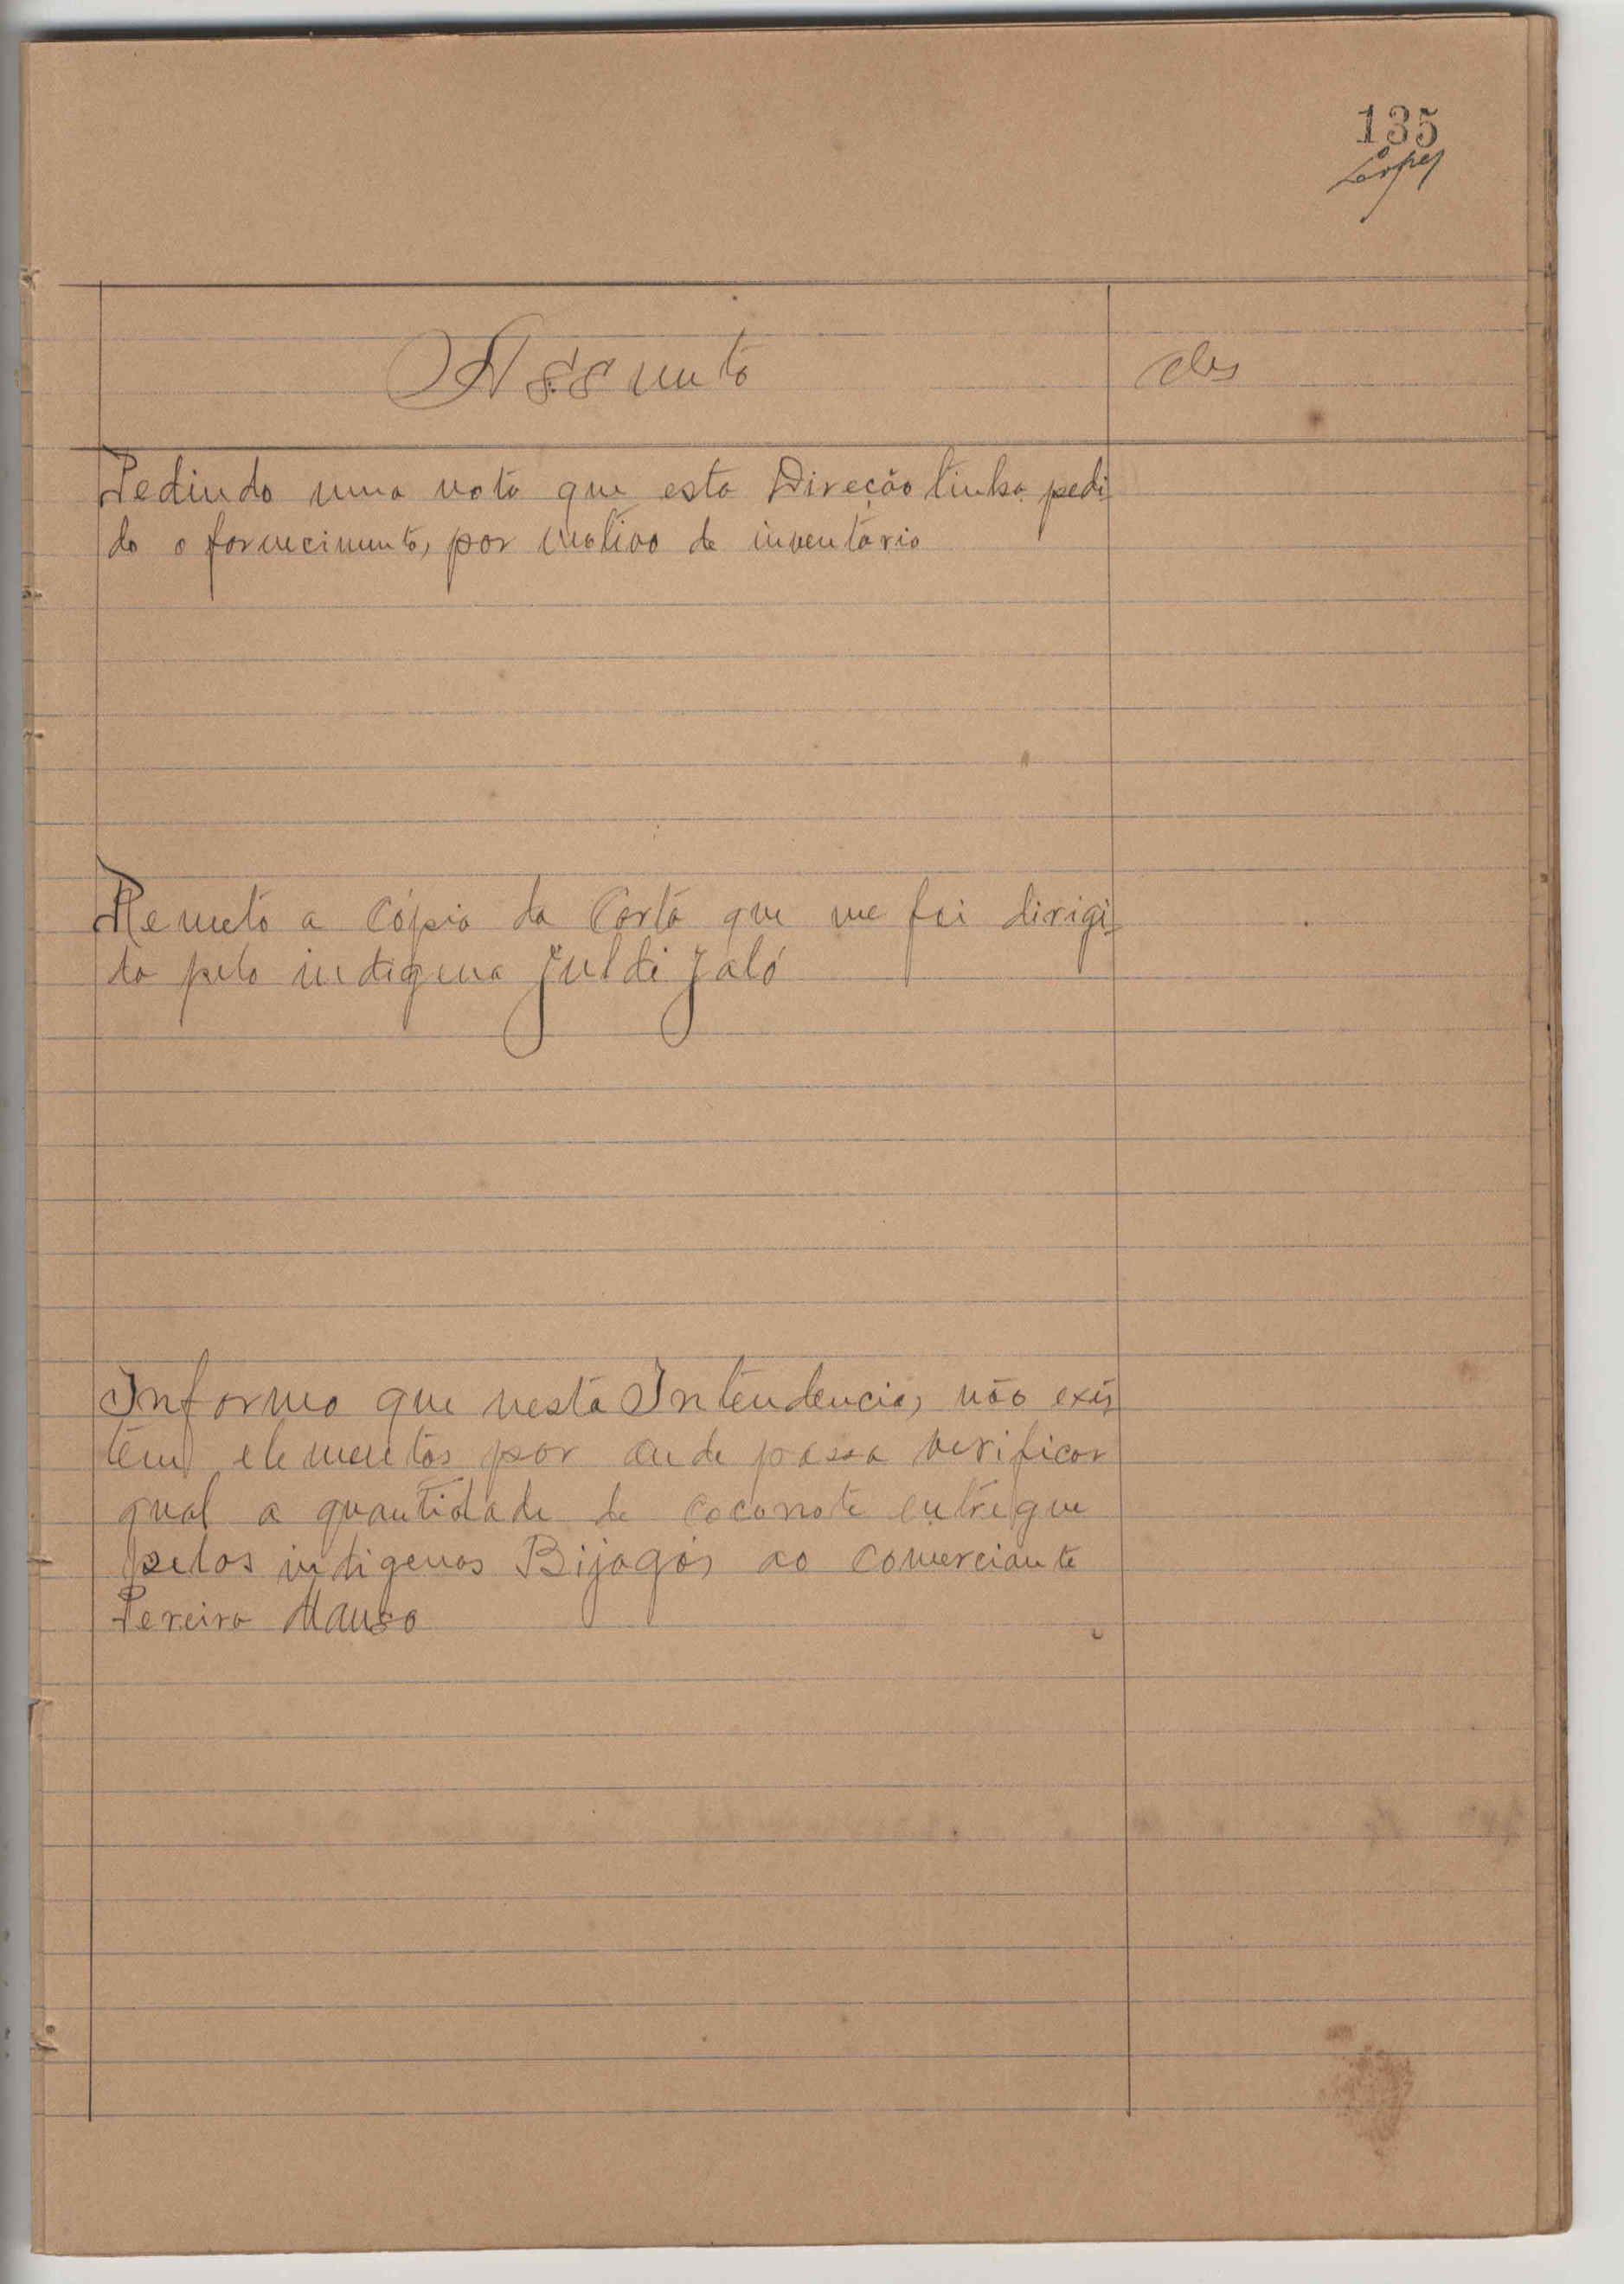 135
Lopes
Assunto
Obs
Pedindo uma nota que esta Direção tinha pedi
do o fornecimento, por motivo de inventário
Remeto a Cópia da Carta que me foi dirigi
da pelo indigena Juldi Jaló
Informo que nesta Intendencia, não exis
tem elementos por onde possa verificar
qual a quantidade de coconote entregue
pelos indigenas Bijagós ao comerciante
Pereira Manso